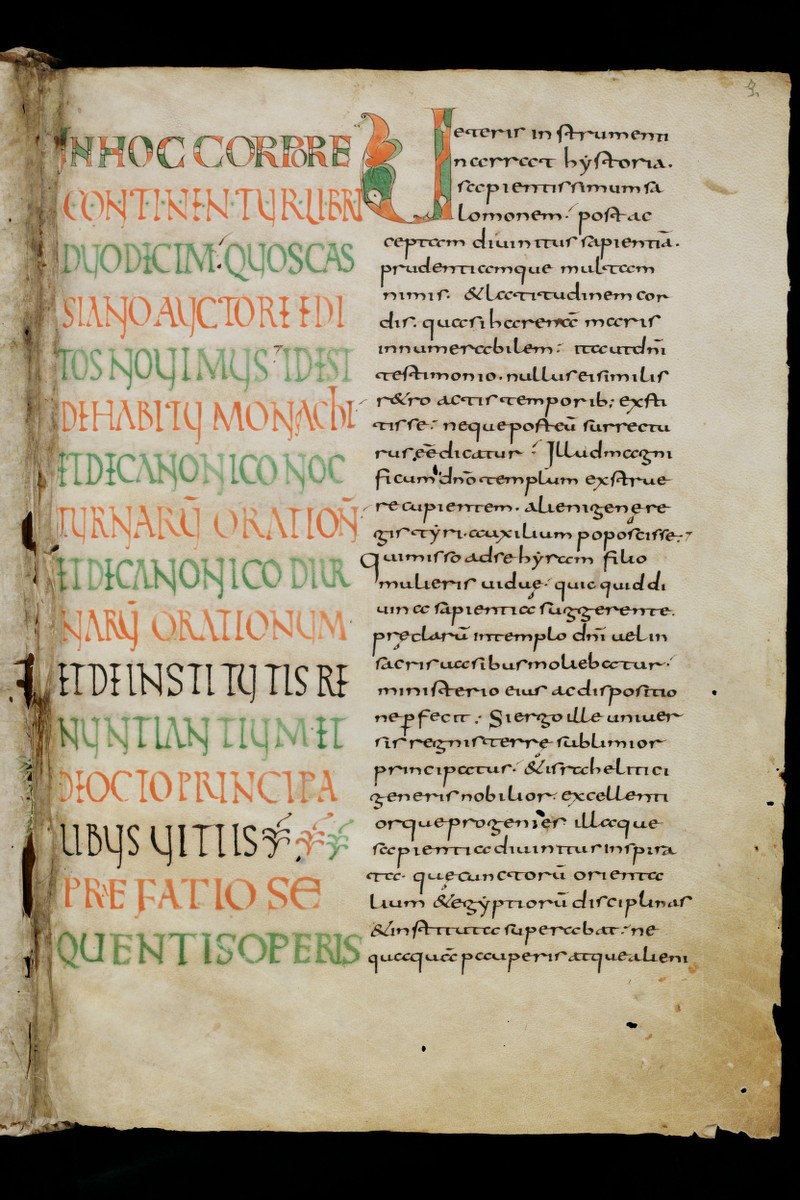 IN HOC CORPORE
CONTINENTUR LIBRI
DUODICIM. QUOS CAS
SIANO AUCTORE EDI
TOS NOUIMUS. ID EST
DE HABITU MONACHI
ET DE CANONICO NOC
TURNARŪ ORATION
ET DE CANONICO DIUR
NARŪ ORATIONUM
ET DE INSTITUTIS RE
NUNTIANTIUM. ET
DE OCTO PRINCIPA
LIBUS UITIIS
PREFATIO SE
QUENTIS OPERIS
Ueteris instrumenti
narrat hystoria.
sapientissimum sa
lomonem. post ac
ceptam diuinitus sapientiā.
prudentiamque multam
nimis. & latitudinem cor
dis. quasi harenā maris
innumerabilem. ita ut dn̄i
testimonio. nullus ei similis
r&ro actis temporib; exsti
tisse. neque post eū surrectu
rus ēē dicatur. Illud magni
ficum dn̄o templum exstrue
re cupientem. alienigenę re
gis tyri. auxilium poposcisse.
Qui misso ad se hyram filio
mulieris uiduę. quicquid di
uina sapientia suggerente.
pręclarū in templo dn̄i uel in
sacris uasibus moliebatur.
ministerio eius ac dispositio
ne pfecit. Si ergo ille uniuer
sis regnis terrę sublimior
principatus. & israhelitici
generis nobilior. excellenti
orque progenies. illaque
sapientia diuinitus inspira
ta. quę cunctorū orienta
lium & egyptiorū disciplinas
& instituta superabat. ne
quaquā pauperis atque alieni